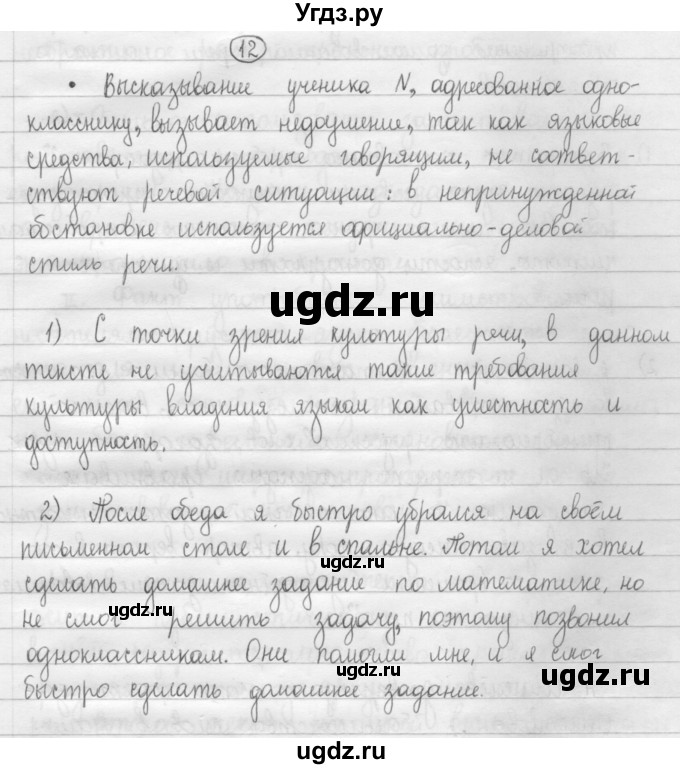 Угдз.ру
12
• Высказывание ученика N, адресованное одно-
класснику, вызывает недоумение, так как языковые
средства, используемые говорящим, не соответ-
ствуют речевой ситуации: в непринужденной
обстановке используется официально-деловой
стиль речи.
ugdz.ru
1) С точки зрения культуры речи, в данном
тексте не учитываются такие требования
культуры владения языком как уместность и
доступность.
ugdz.ru
2) После обеда я быстро убрался на своём
письменном столе и в спальне. Потом я хотел
сделать домашнее задание по математике, но
ugdz.ru
не смог решить задачу, поэтому позвонил
одноклассникам. Они помогли мне, и я смог
ugdz.ru
быстро сделать домашнее задание.
ugdz.ru
ugdz.ru